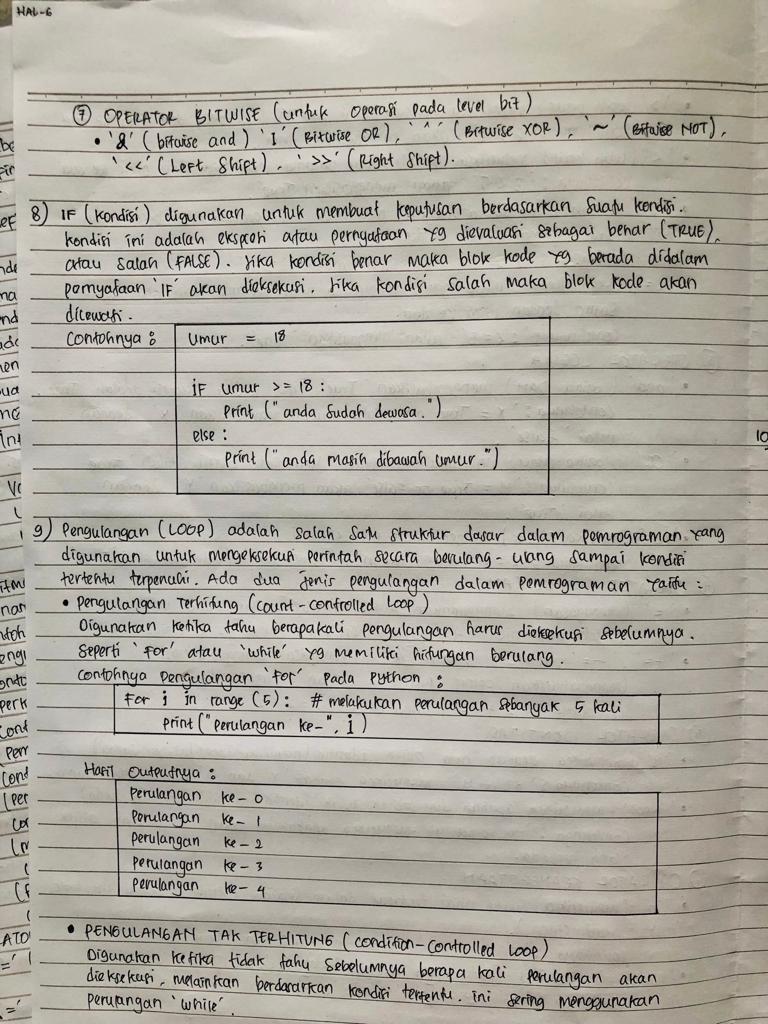 HAL-6
⑦ OPERATOR BITWISE (untuk operasi pada level bit)
• '&' (bitwise and) '|' (Bitwise OR), '^' (Bitwise XOR), '~' (Bitwise NOT),
'<<' (Left Shift), '>>' (Right Shift).
8) IF (Kondisi) digunakan untuk membuat keputusan berdasarkan suatu kondisi.
kondisi ini adalah ekspresi atau pernyataan yg dievaluasi sebagai benar (TRUE),
atau salah (FALSE). Jika kondisi benar maka blok kode yg berada didalam
pernyataan 'IF' akan dieksekusi. Jika kondisi salah maka blok kode akan
dilewati.
Contohnya :
umur = 18
if umur >= 18 :
print ("anda sudah dewasa.")
else :
print ("anda masih dibawah umur.")
9) Pengulangan (LOOP) adalah salah satu struktur dasar dalam pemrograman yang
digunakan untuk mengeksekusi perintah secara berulang-ulang sampai kondisi
tertentu terpenuhi. Ada dua jenis pengulangan dalam pemrograman yaitu :
• Pengulangan Terhitung (count-controlled Loop)
Digunakan ketika tahu berapakali pengulangan harus dieksekusi sebelumnya.
Seperti 'for' atau 'while' yg memiliki hitungan berulang.
contohnya pengulangan 'for' pada python :
For i in range (5): # melakukan perulangan sebanyak 5 kali
print ("perulangan ke-", i)
Hasil Outputnya :
Perulangan ke- 0
Perulangan ke- 1
Perulangan ke- 2
Perulangan ke- 3
Perulangan ke- 4
• PENGULANGAN TAK TERHITUNG (condition-Controlled Loop)
Digunakan ketika tidak tahu sebelumnya berapa kali perulangan akan
dieksekusi, melainkan berdasarkan kondisi tertentu. ini sering menggunakan
perulangan 'while'.
10